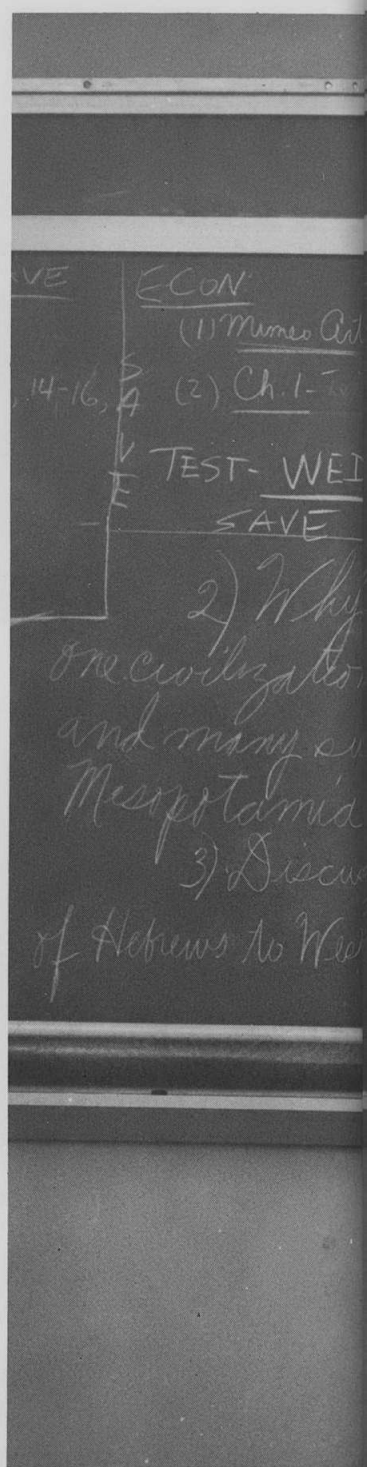 VE
, 14-16,
SAVE
ECON
(1) Mimeo Art
(2) Ch. 1-
TEST- WED
SAVE
2) Why
one civilization
and many su
Mesopotamia
3) Discus
of Hebrews to Wes